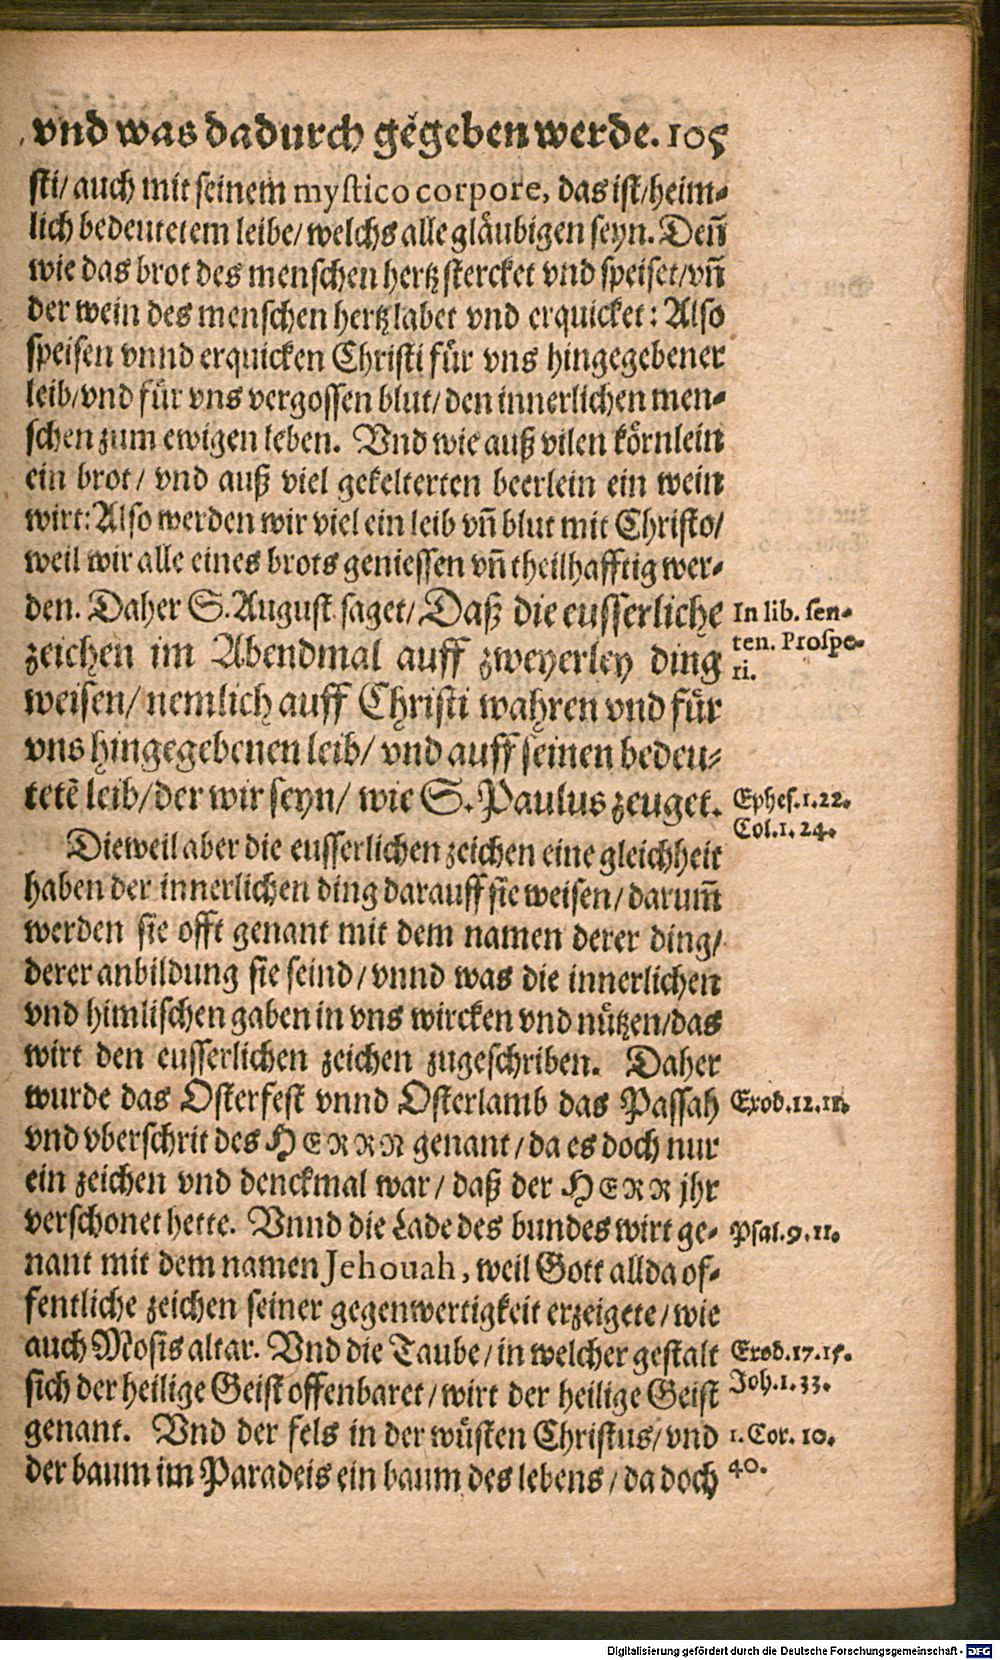 vnd was dadurch gegeben werde. 105
sti/ auch mit seinem mystico corpore, das ist/ heim-
lich bedeutetem leibe/ welchs alle gläubigen seyn. Deñ
wie das brot des menschen hertz stercket vnd speiset/ vñ
der wein des menschen hertz labet vnd erquicket: Also
speisen vnnd erquicken Christi für vns hingegebener
leib/ vnd für vns vergossen blut/ den innerlichen men-
schen zum ewigen leben. Vnd wie auß vilen körnlein
ein brot/ vnd auß viel gekelterten beerlein ein wein
wirt: Also werden wir viel ein leib vñ blut mit Christo/
weil wir alle eines brots geniessen vñ theilhafftig wer-
den. Daher S. August. saget/ Daß die eusserliche
In lib. sen-
zeichen im Abendmal auff zweyerley ding
ten. Prospe-
ri.
weisen/ nemlich auff Christi wahren vnd für
vns hingegebenen leib/ vnd auff seinen bedeu-
tetē leib/ der wir seyn/ wie S. Paulus zeuget.
Ephes.1.22.
Col.1.24.
Dieweil aber die eusserlichen zeichen eine gleichheit
haben der innerlichen ding darauff sie weisen/ darum̃
werden sie offt genant mit dem namen derer ding/
derer anbildung sie seind/ vnnd was die innerlichen
vnd himlischen gaben in vns wircken vnd nützen/ das
wirt den eusserlichen zeichen zugeschriben. Daher
wurde das Osterfest vnnd Osterlamb das Passah
Exod.12.11.
vnd vberschrit des HERRN genant/ da es doch nur
ein zeichen vnd denckmal war/ daß der HERR jhr
verschonet hette. Vnnd die Lade des bundes wirt ge-
Psal.9.11.
nant mit dem namen Jehouah, weil Gott allda of-
fentliche zeichen seiner gegenwertigkeit erzeigete/ wie
auch Mosis altar. Vnd die Taube/ in welcher gestalt
Exod.17.15.
sich der heilige Geist offenbaret/ wirt der heilige Geist
Joh.1.33.
genant. Vnd der fels in der wüsten Christus/ vnd
1.Cor. 10.
der baum im Paradeis ein baum des lebens/ da doch
40.
Digitalisierung gefördert durch die Deutsche Forschungsgemeinschaft - DFG